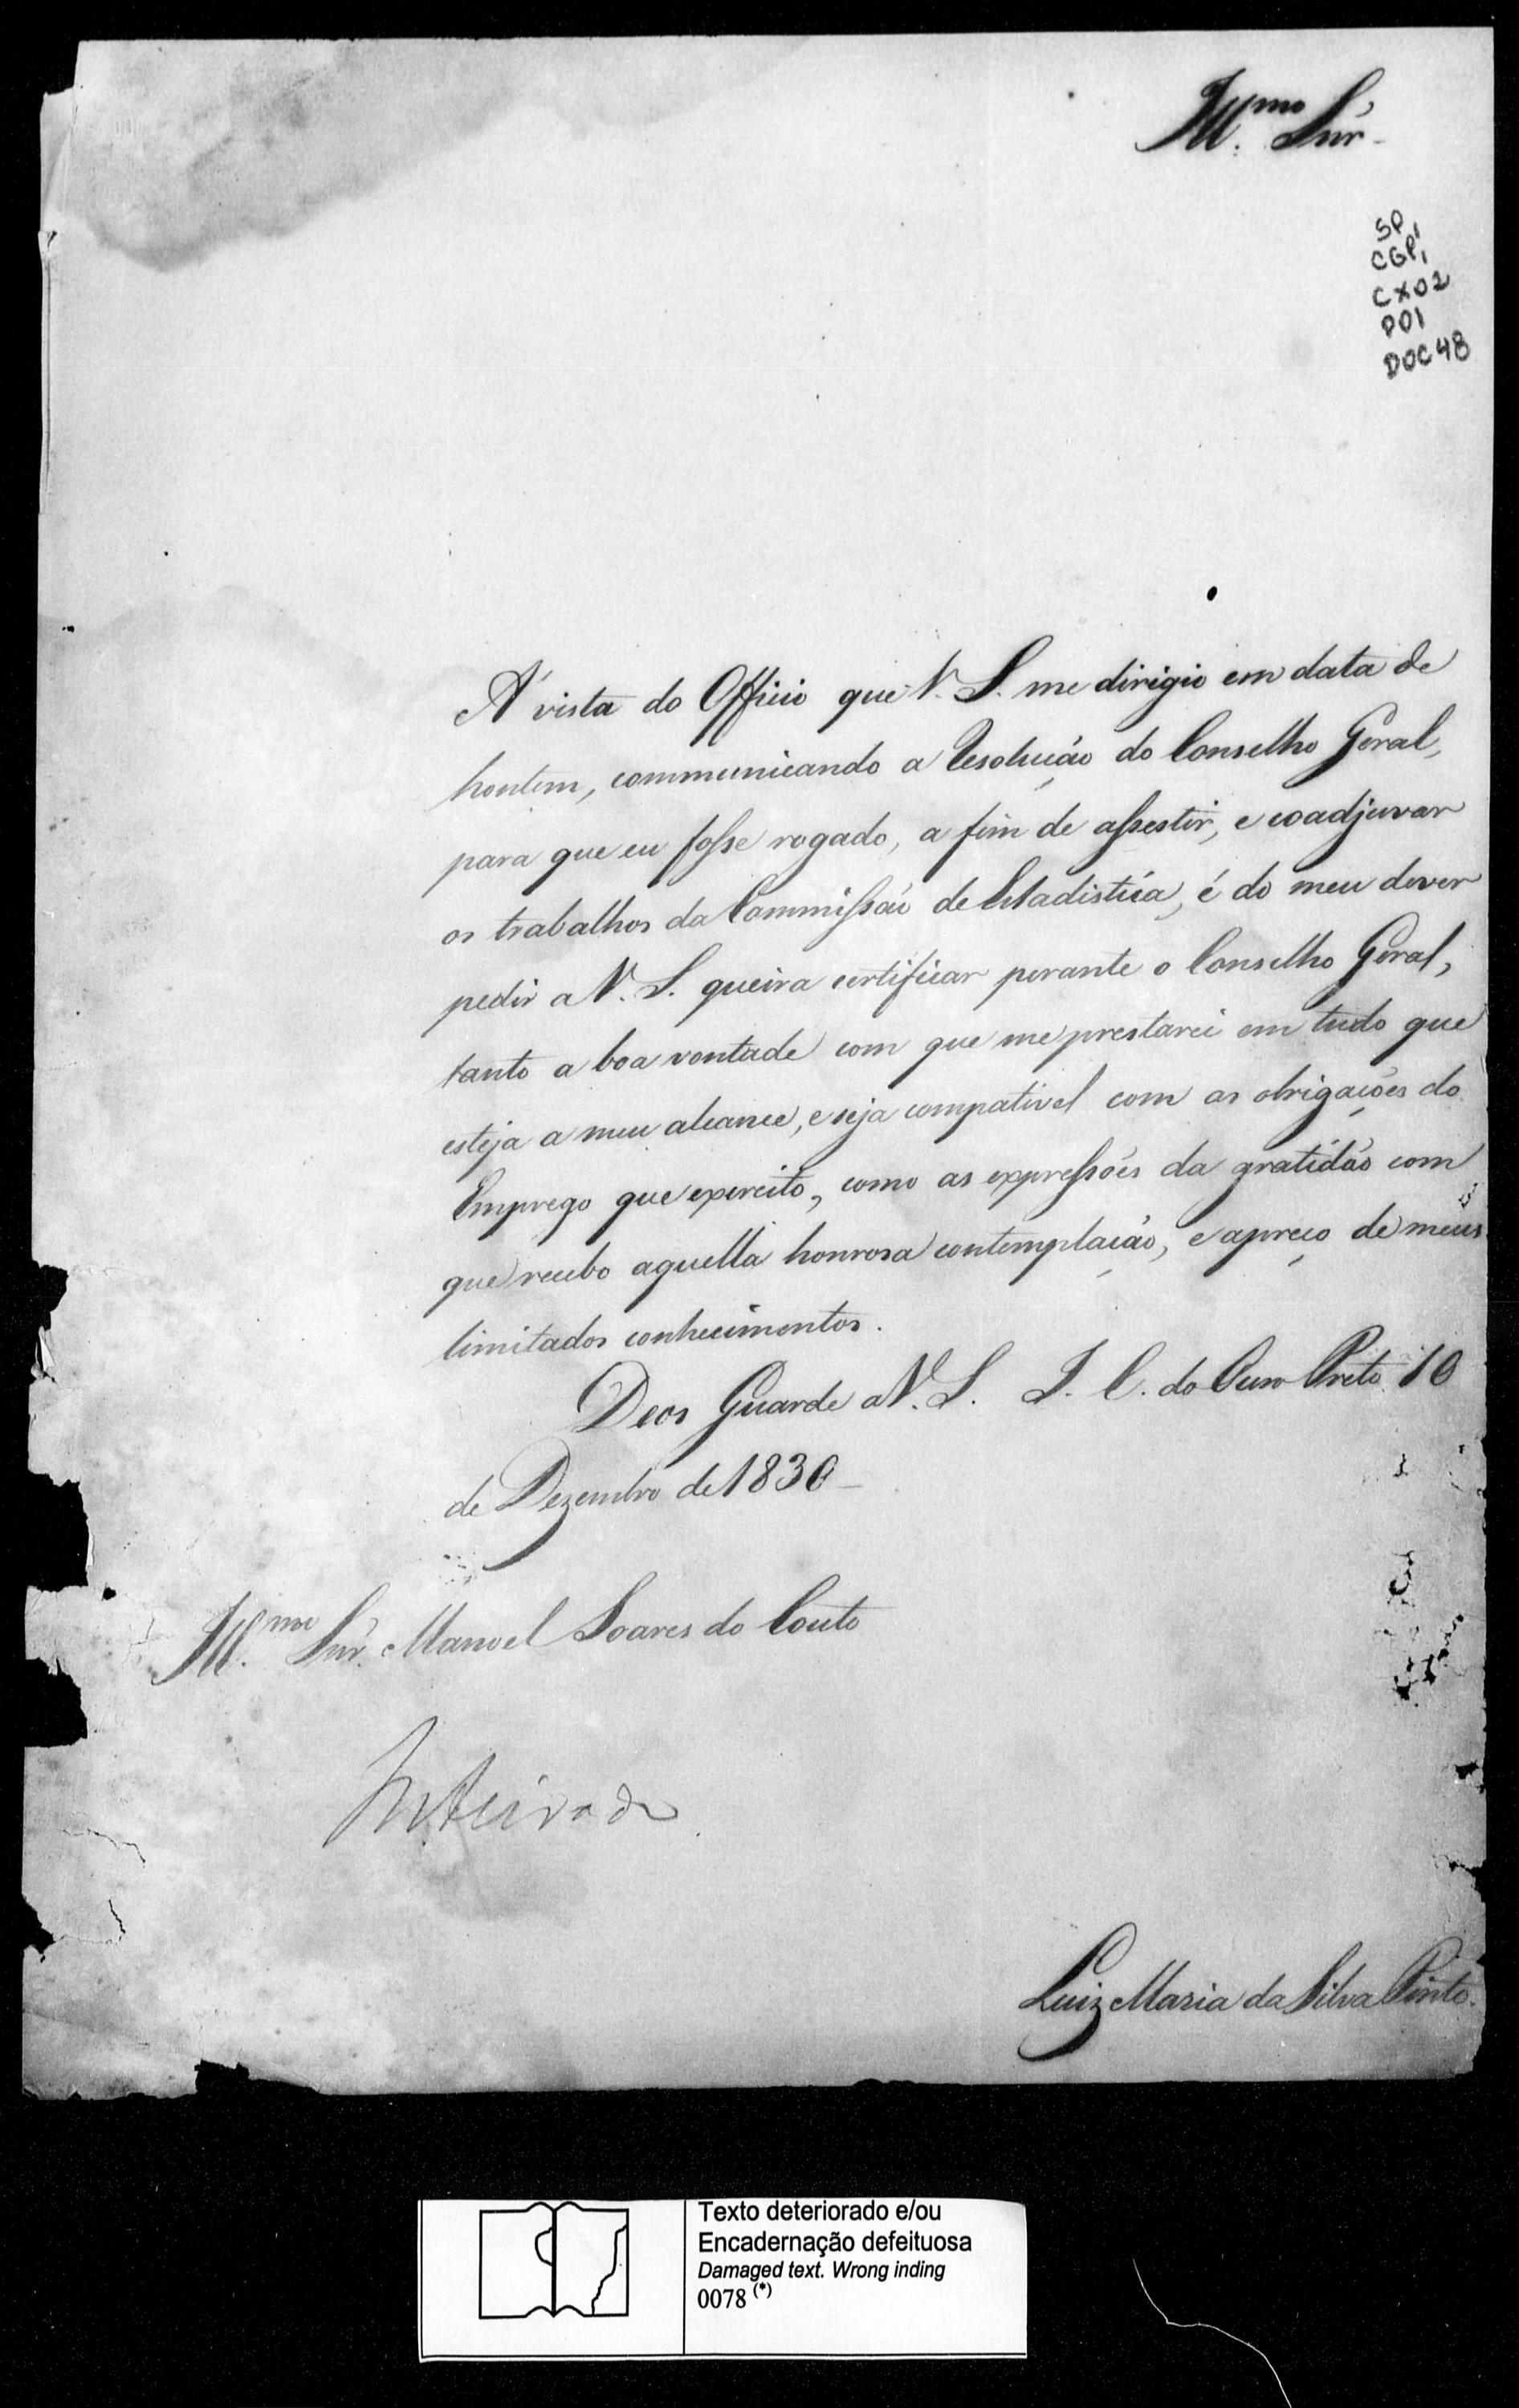 Ill.mo Snr.
SP,
CGP1,
CX02
P01
DOC48
Á vista do Officio que V. S. me dirigio em data de
hontem, communicando a Resolução do Conselho Geral,
para que eu fosse rogado, a fim de assestir, e coadjuvar
os trabalhos da Commissão de Estadistica, é do meu dever
pedir a V. S. queira certificar perante o Conselho Geral,
tanto a boa vontade com que me prestarei em tudo que
esteja a meu alcance, e seja compativel com as obrigações do
Emprego que exercito, como as expressões da gratidão com
que recebo aquella honrosa contemplação, e apreço de meus
limitados conhecimentos.
Deos Guarde a V. S. I. C. do Ouro Preto 10
de Dezembro de 1830
Ill.mo Snr. Manoel Soares do Couto
Inteirado
Luiz Maria da Silva Pinto.
Texto deteriorado e/ou
Encadernação defeituosa
Damaged text. Wrong inding
0078 (*)